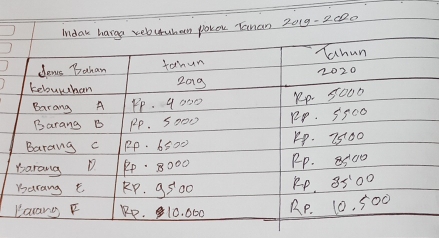 Indak harga kebutuhan pokok Tanan 2019-2020
Jenis Bahan Kebutuhan tahun 2019 Tahun 2020
Barang A Rp. 4000 Rp. 5000
Barang B Rp. 5000 Rp. 5500
Barang C Rp. 6500 Rp. 7500
Barang D Rp. 8000 Rp. 8500
Barang E Rp. 9500 Rp. 8500
Barang F Rp. 10.000 Rp. 10.500